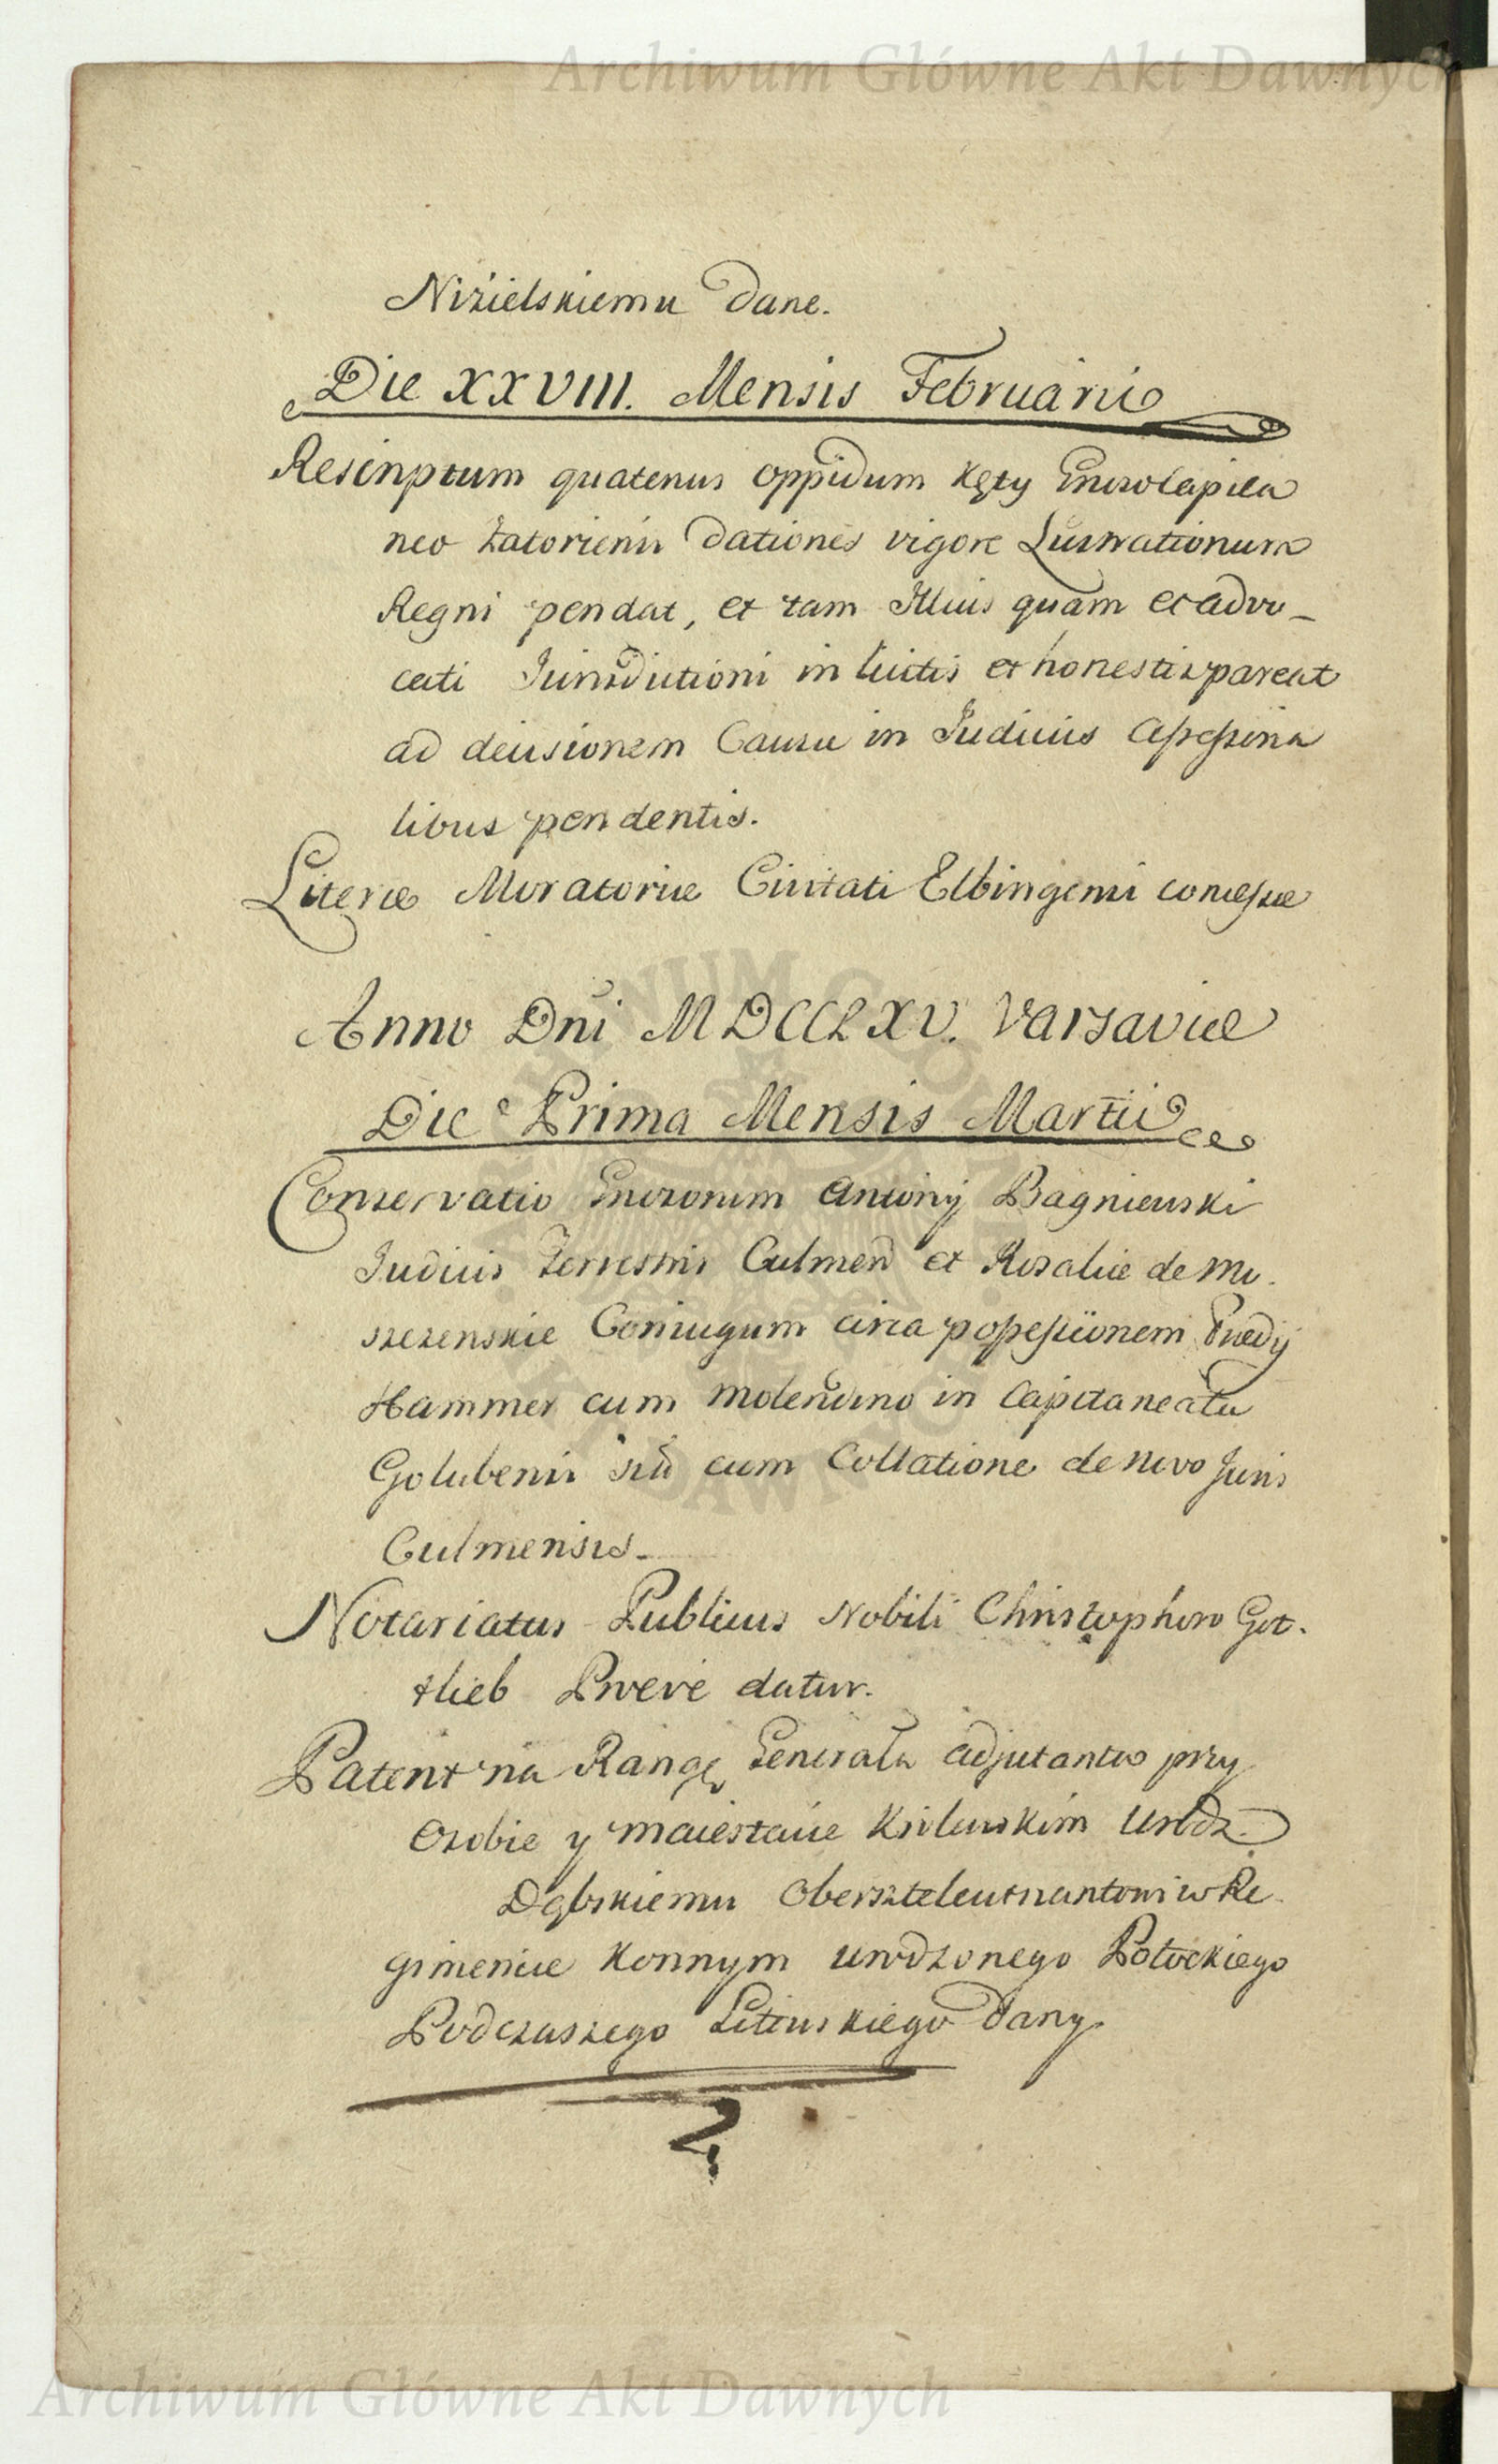 Archiwum Główne Akt Dawnych
Nizielskiemu dane.
Die XXVIII. Mensis Februarii
Rescriptum quatenus oppidum Kęty Gnroso Capita
neo Zatoriensi dationes vigore Lustrationum
Regni pendat, et tam Illius quam et advo-
cati Jurisdictioni in licitis et honestis pareat
ad decisionem Causæ in Judiciis Assessoria
libus pendentis.
Literæ Moratoriæ Civitati Elbingensi concessæ
Anno Dni MDCCLXV. Varsaviæ
Die Prima Mensis Martii
Conservatio Gnrosorum Antonij Bagniewski
Judicis Terrestris Culmen et Rosaliæ de Mo-
szczenskie Coniugum circa possessionem Prædij
Hammer cum molendino in Capitaneatu
Golubensi siti cum Collatione de novo Juris
Culmensis.
Notariatus Publicus Nobili Christophoro Got-
tlieb Preve datur.
Patent na Rangę Generała Adjutanta przy
Osobie y Maiestacie Krolewskim Urodz.
Dąbskiemu Oberszteleutnantowi w Re-
gimencie Konnym Urodzonego Potockiego
Podczaszego Litewskiego dany.
Archiwum Główne Akt Dawnych